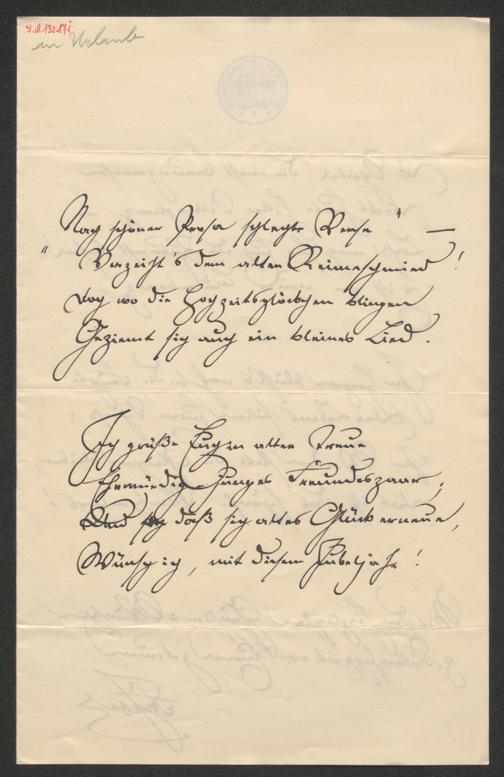 I.N.13287i
an Urlaub
Nach schöner Prosa schlechte Verse" —
"Verzeiht's dem alten Reimeschmied!
Doch wo die Hochzeitsglöckchen klingen
Geziemt sich auch ein kleines Lied.
Ich grüße Euch in alter Treue
Ehrwürdig junges Freundespaar,
Und daß sich altes Glück erneue,
Wünsch ich, mit diesem Jubeljahr!